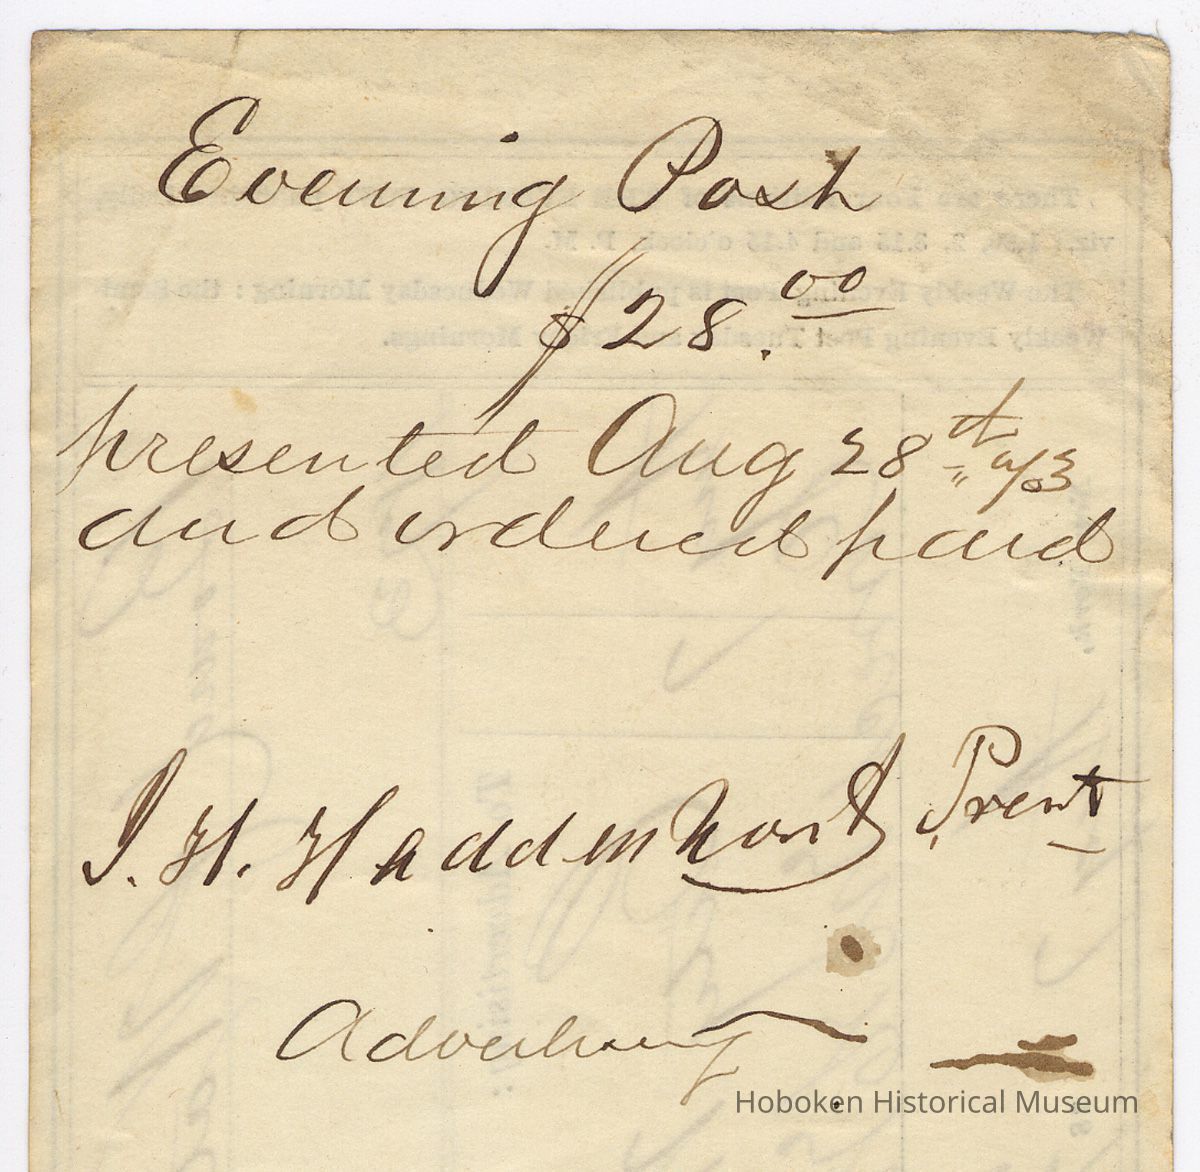 Evening Post
$28.00
presented Aug 28th "/73
and ordered paid
J. H. Haddenhorst, Prent
Advertising
Hoboken Historical Museum